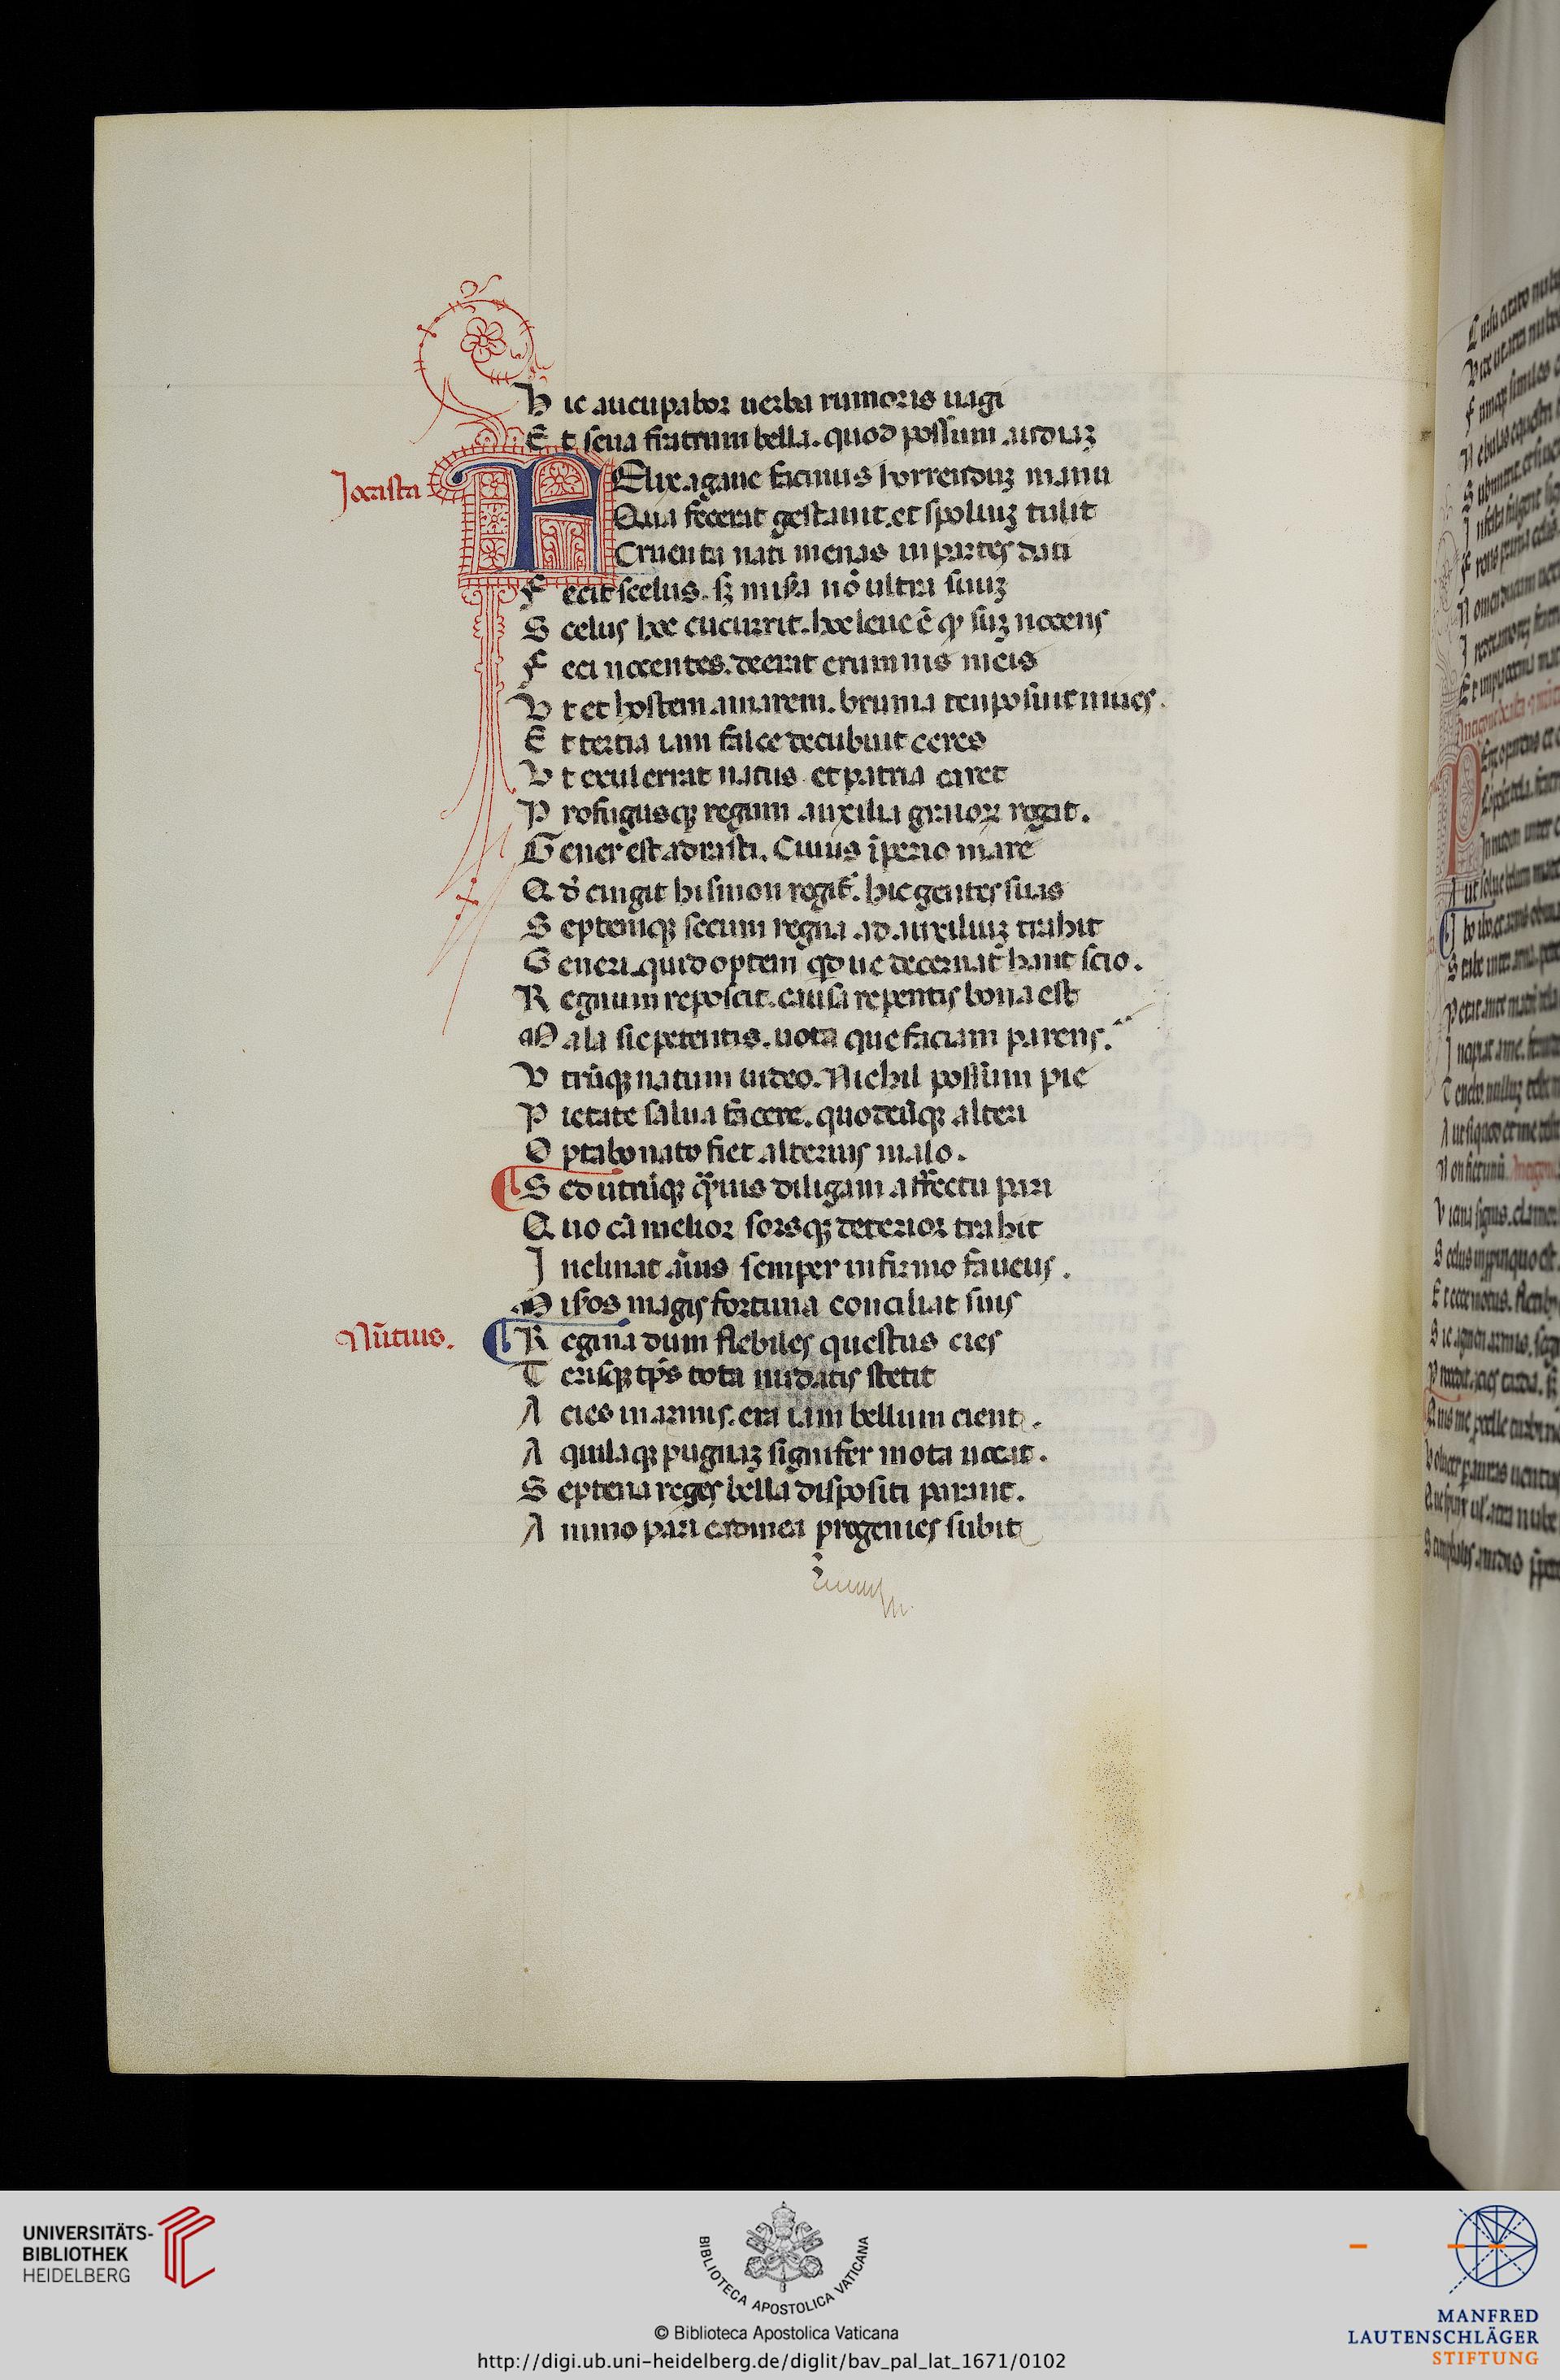 H ic aucupabor uerba rumoris uagi
E t seua fratrum bella. quod possum audiaȝ
Jocasta
FElix agaue facinus horrenduȝ manu
Qua fecerat gestauit. et spoliuȝ tulit
Cruenta nati menas in partes dati
F ecit scelus. sȝ misa nō ultra suuȝ
S celus hoc cucurrit. hoc leue ē qͥ suȝ nocens
F eci nocentes. deerat erumnis meis
V t et hostem amarem. bruma ter posuit niues.
E t tertia iam falce decubuit ceres
V t exul errat natus et patria caret
P rofugusqȝ regum auxilia graioꝝ rogat.
G ener est adrasti. Cuius īperio mare
Q d̕ cingit hismon regit̕. hic gentes suas
S eptemqȝ secum regna ad auxiliuȝ trahit
G eneri. quid optem qd̕ue decernat haut scio.
R egnum reposcit. causa repentis bona est
M ala sic petentis. uota que faciam parens.
V trūqȝ natum uideo. Nichil possum pie
P ietate salua facere. quodcūqȝ alteri
O ptabo nato fiet alterius malo.
S ed utrūqȝ qͣuis diligam affectu pari
Q uo cā melior sorsqȝ deterior trahit
I nclinat aīus semper infirmo fauens.
M isos magis fortuna conciliat suis
Nūtius.
R egina dum flebiles questus cies
T erisqȝ tp̄s tota nudatis stetit
A cies in armis. era iam bellum cient.
A quilaqȝ pugnaȝ signifer mota uocat.
S eptena reges bella dispositi parant.
A nimo pari cadmea progenies subit
UNIVERSITÄTS-
BIBLIOTHEK
HEIDELBERG
BIBLIOTECA APOSTOLICA VATICANA
© Biblioteca Apostolica Vaticana
http://digi.ub.uni-heidelberg.de/diglit/bav_pal_lat_1671/0102
MANFRED
LAUTENSCHLÄGER
STIFTUNG